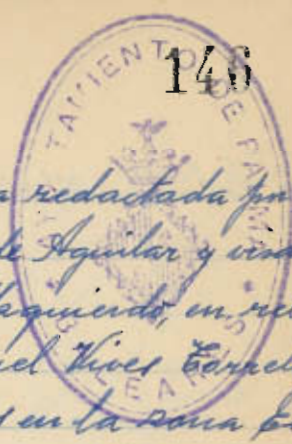 146
AYUNTAMIENTO DE PALMA
BALEARES
a redactada por
de Aguilar y
Izquierdo, en
el Vives Torre
en la zona